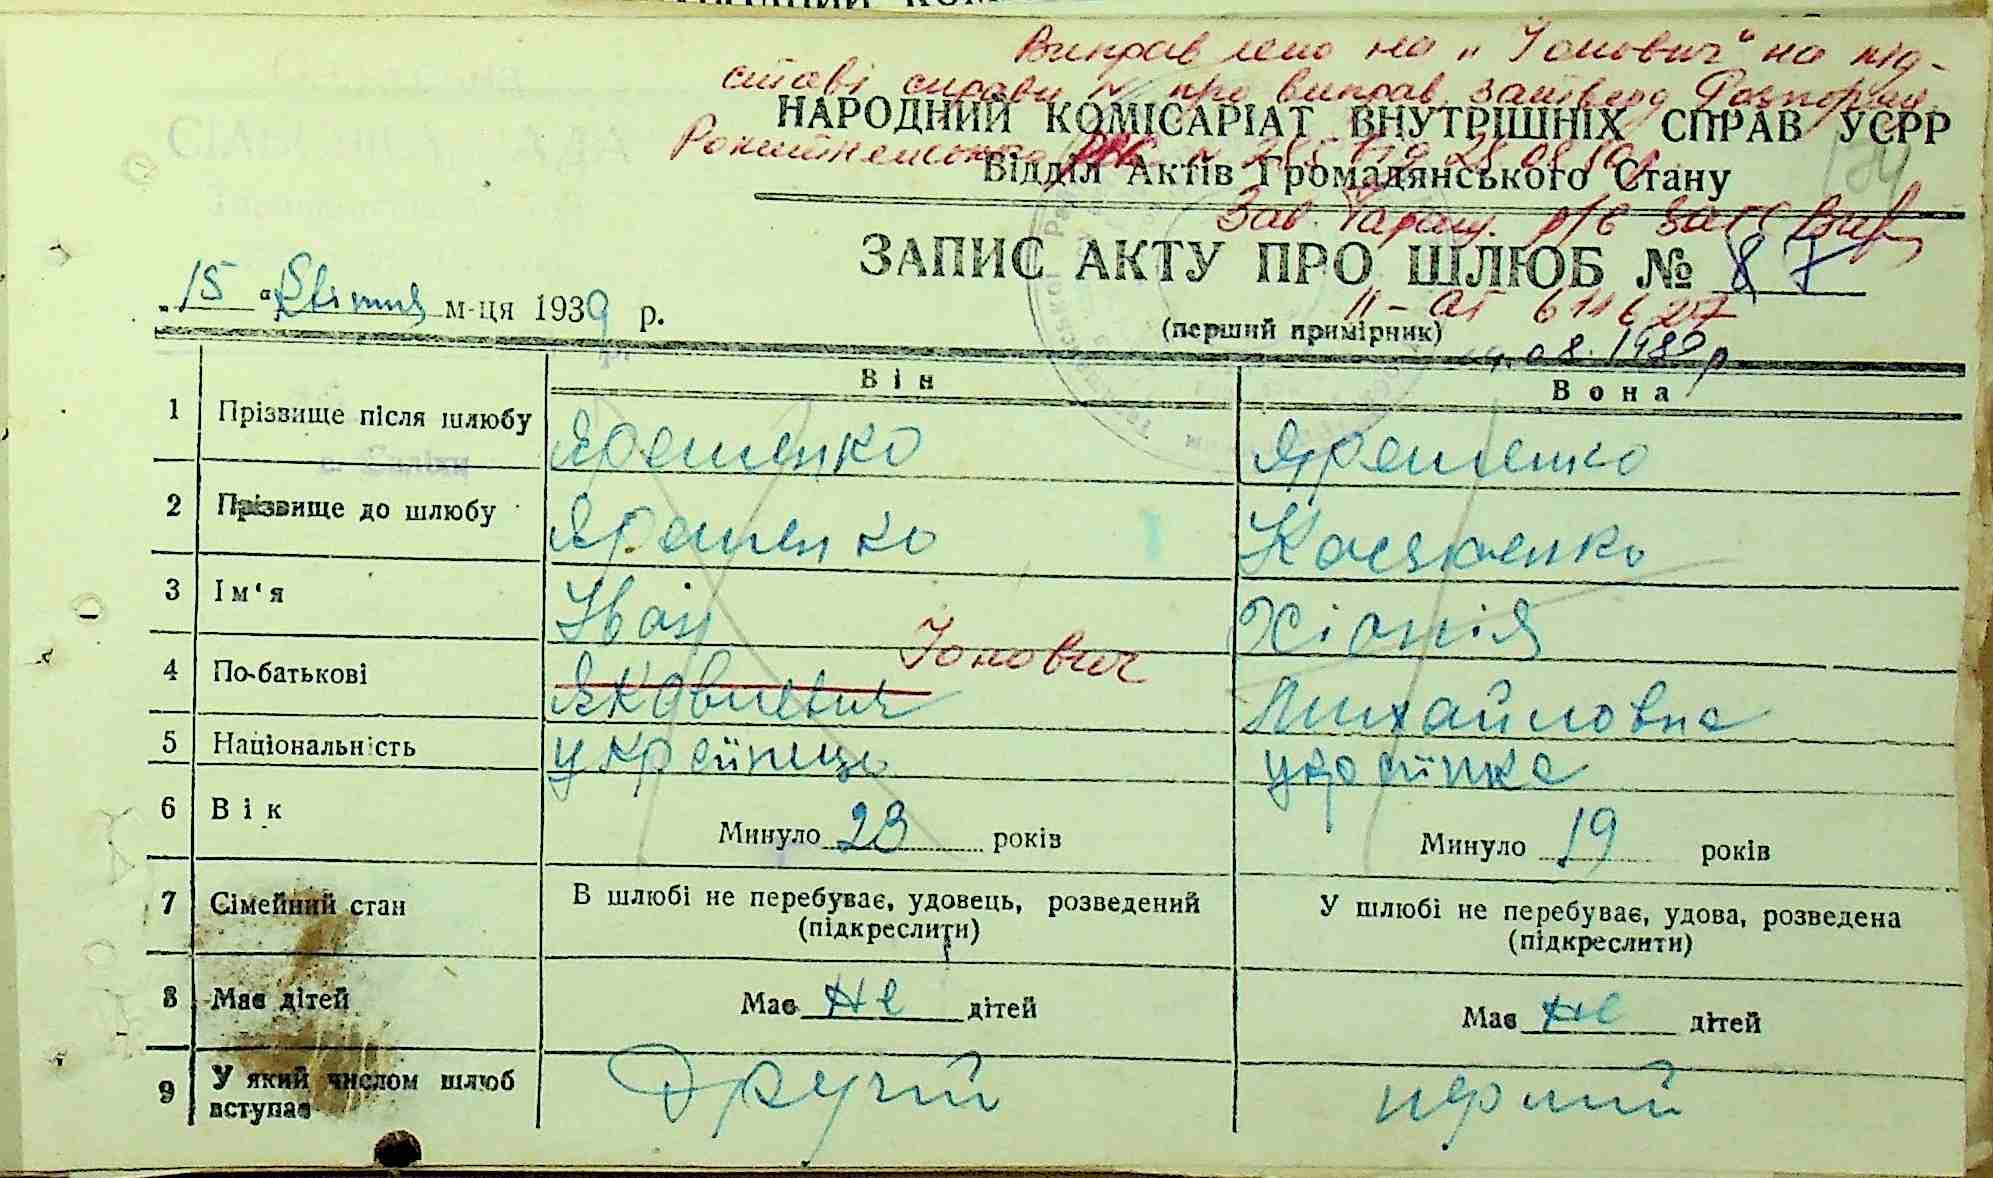 Виправлено на „Іонович" на під-
ставі справи № про виправ. затверд. Розпоряд.
НАРОДНИЙ КОМІСАРІАТ ВНУТРІШНІХ СПРАВ УСРР
Рокитнянського РВК №
Відділ Актів Громадянського Стану
Зав. Таращ. р/б ЗАГС
ЗАПИС АКТУ ПРО ШЛЮБ № 87
„15 " Квітня м-ця 1939 р.
II-
(перший примірник)
08. 1980 р
Він
Вона
1 Прізвище після шлюбу Ярошенко Ярошенко
с. Саліхи
2 Прізвище до шлюбу Ярошенко
3 Ім'я Іван Хіонія
Іонович
4 По-батькові Яковлевич Михайловна
5 Національність українець українка
6 Вік Минуло 23 років Минуло 19 років
7 Сімейний стан В шлюбі не перебуває, удовець, розведений У шлюбі не перебуває, удова, розведена
(підкреслити) (підкреслити)
8 Має дітей Має не дітей Має не дітей
9 У який числом шлюб
вступає Другій перший